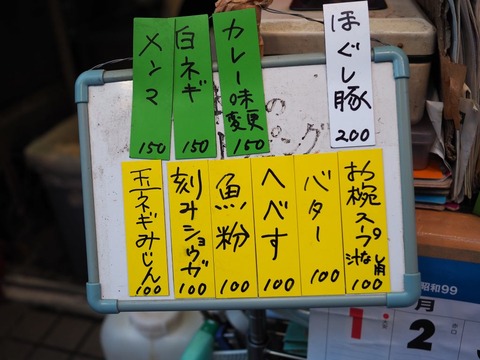 ほぐし豚
200
カレー味
変更
150
白ネギ
150
メンマ
150
の
ピング
お椀スープ
汁なし用
100
バター
100
へべす
100
魚粉
100
刻みショウガ
100
玉ネギみじん
100
昭和99
月
1
2